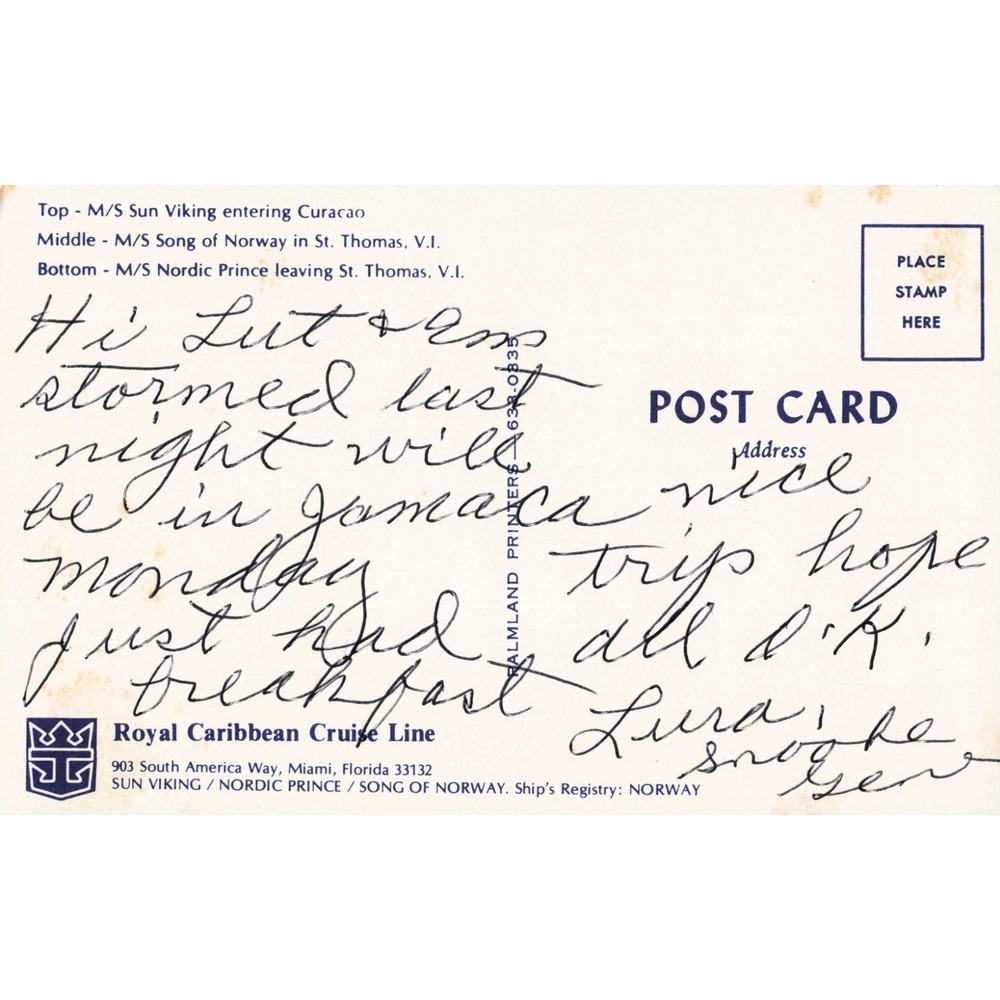 Top - M/S Sun Viking entering Curacao
Middle - M/S Song of Norway in St. Thomas, V.I.
Bottom - M/S Nordic Prince leaving St. Thomas, V.I.
Hi Lut & Em
stormed last
night will
be in Jamaca
monday
just had
breakfast
PALMLAND PRINTERS—633-0335
PLACE
STAMP
HERE
POST CARD
Address
nice
trip hope
all O.K.
Lura,
Gen
Royal Caribbean Cruise Line
903 South America Way, Miami, Florida 33132
SUN VIKING / NORDIC PRINCE / SONG OF NORWAY. Ship's Registry: NORWAY